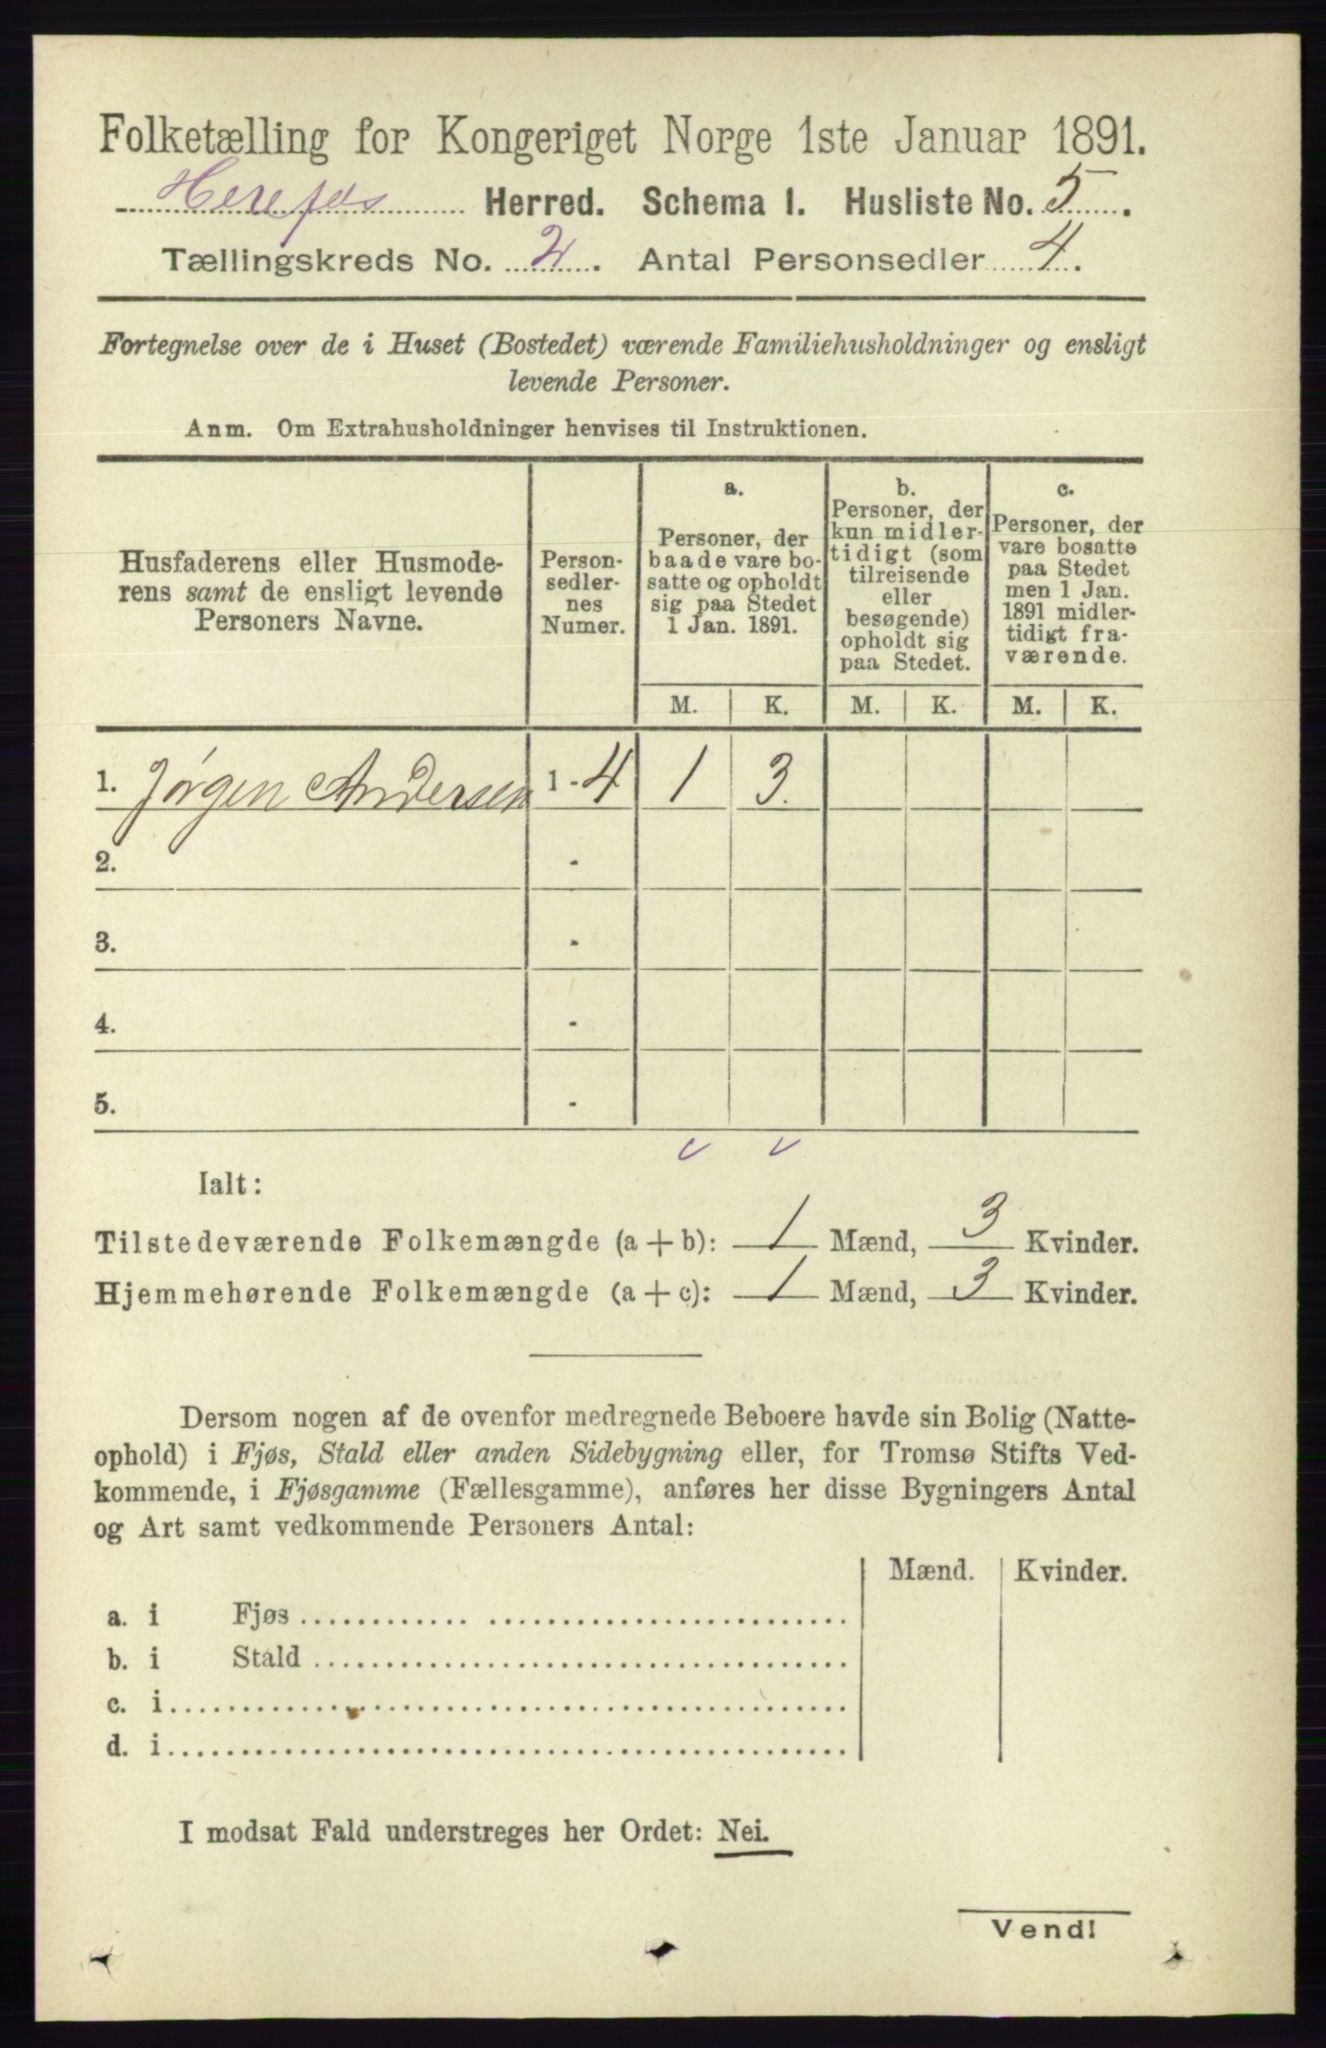 Folketælling for Kongeriget Norge 1ste Januar 1891.
Herefos Herred. Schema 1. Husliste No. 5.
Tællingskreds No. 2. Antal Personsedler 4.
Fortegnelse over de i Huset (Bostedet) værende Familiehusholdninger og ensligt
levende Personer.
Anm. Om Extrahusholdninger henvises til Instruktionen.
Husfaderens eller Husmode-
rens samt de ensligt levende
Personers Navne.
Person-
sedler-
nes
Numer.
a.
Personer, der
baade vare bo-
satte og opholdt
sig paa Stedet
1 Jan. 1891.
b.
Personer, der
kun midler-
tidigt (som
tilreisende
eller
besøgende)
opholdt sig
paa Stedet.
c.
Personer, der
vare bosatte
paa Stedet
men 1 Jan.
1891 midler-
tidigt fra-
værende.
M. K. M. K. M. K.
1. Jørgen Andersen 1 - 4 1 3.
2. -
3. -
4. -
5. -
Ialt:
Tilstedeværende Folkemængde (a + b): 1 Mænd, 3 Kvinder.
Hjemmehørende Folkemængde (a + c): 1 Mænd, 3 Kvinder.
Dersom nogen af de ovenfor medregnede Beboere havde sin Bolig (Natte-
ophold) i Fjøs, Stald eller anden Sidebygning eller, for Tromsø Stifts Ved-
kommende, i Fjøsgamme (Fællesgamme), anføres her disse Bygningers Antal
og Art samt vedkommende Personers Antal:
Mænd. Kvinder.
a. i Fjøs
b. i Stald
c. i
d. i
I modsat Fald understreges her Ordet: Nei.
Vend!